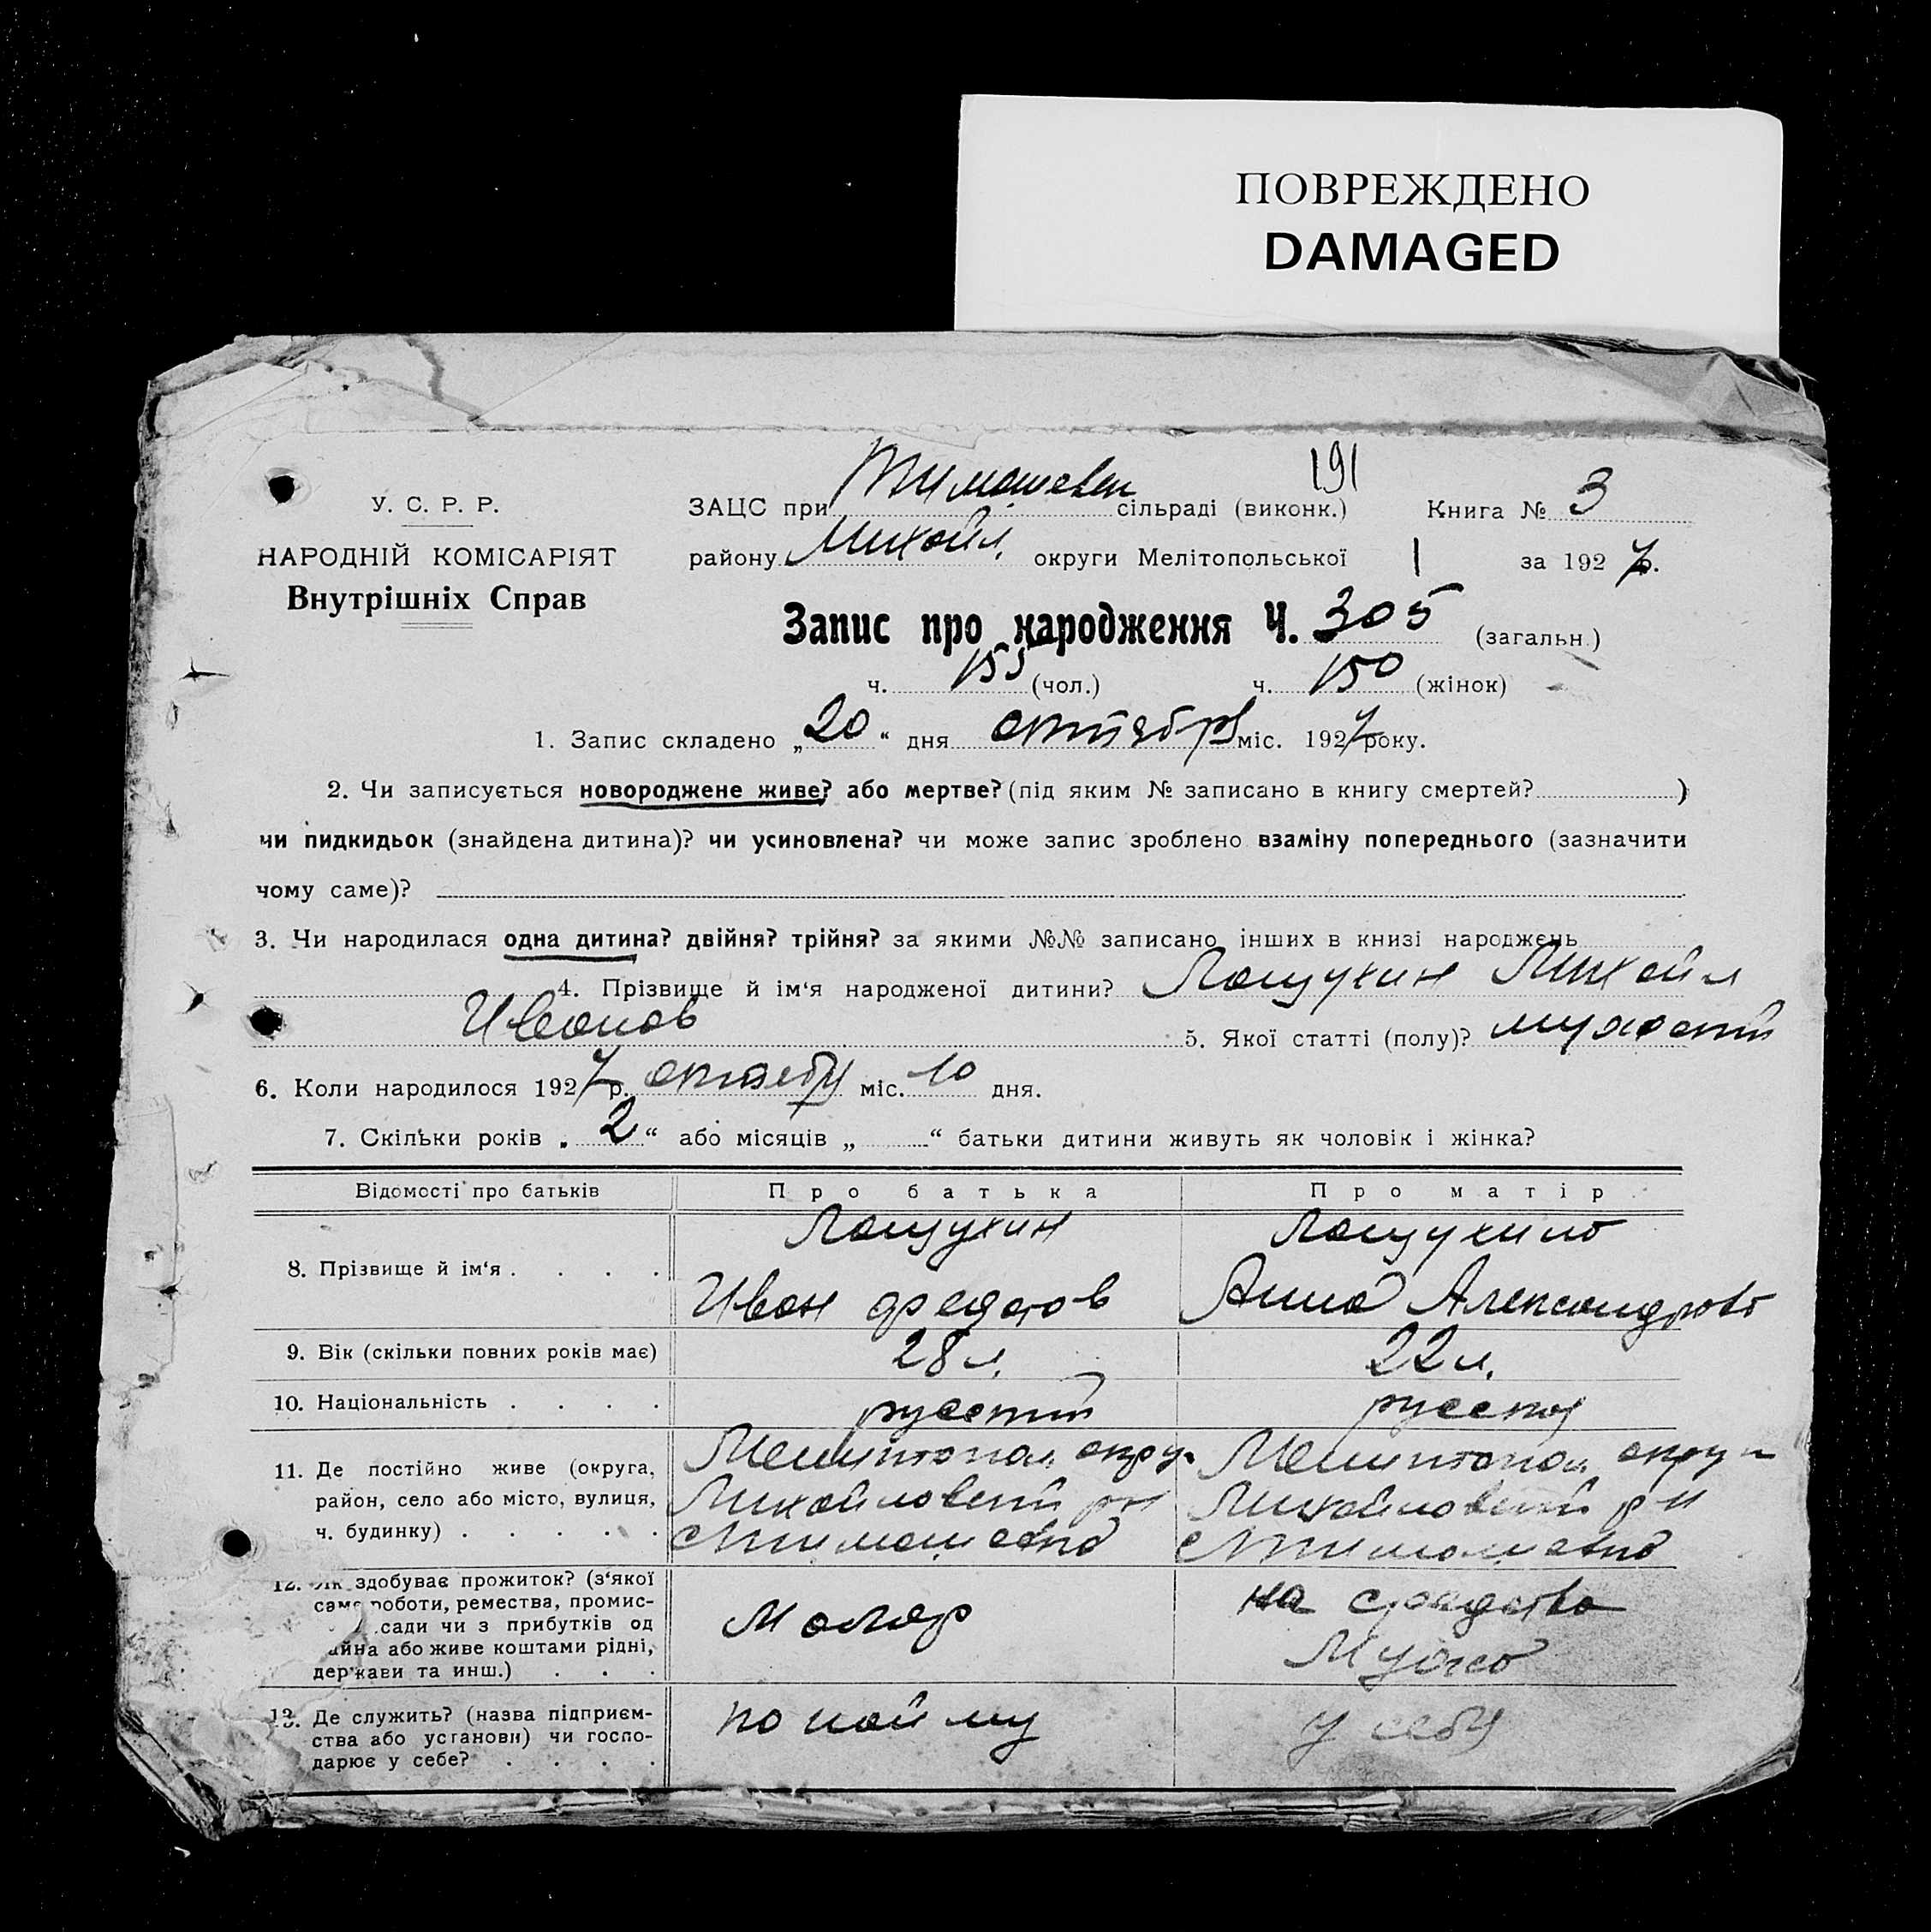 ПОВРЕЖДЕНО
DAMAGED
191
У. С. Р. Р.
НАРОДНІЙ КОМІСАРІЯТ
Внутрішніх Справ
ЗАЦС при Тимошевск сільраді (виконк.) Книга № 3
району Михайл. округи Мелітопольської 1 за 1927 р.
Запис про народження Ч. 305 (загальн.)
ч. 155 (чол.) ч. 150 (жінок)
1. Запис складено „20“ дня октября міс. 1927 року.
2. Чи записується новороджене живе? або мертве? (під яким № записано в книгу смертей? )
чи пидкидьок (знайдена дитина)? чи усиновлена? чи може запис зроблено взаміну попереднього (зазначити
чому саме)?
3. Чи народилася одна дитина? двійня? трійня? за якими №№ записано інших в книзі народжень
4. Прізвище й ім‘я народженої дитини? Лощухин Михайл
Иванов 5. Якої статті (полу)? мужскп
6. Коли народилося 1927 р. октября міс. 10 дня.
7. Скільки років „2“ або місяців „ “ батьки дитини живуть як чоловік і жінка?
Відомості про батьків Про батька Про матір
8. Прізвище й ім‘я . . . . Лощухин Лощухина
Иван Федотов Анна Александрова
9. Вік (скільки повних років має) 28 л. 22 л.
10. Національність . . . . русский русская
11. Де постійно живе (округа, Мелитопол. округ Мелитопол. округ
район, село або місто, вулиця, Михайловский р-н Михайловский р-н
ч. будинку) . . . . . с Тимошевка с Тимошевка
12. Як здобуває прожиток? (з‘якої
саме роботи, ремества, промис-
сади чи з прибутків од Маляр на средства
майна або живе коштами рідні, мужа
держави та инш.) . . .
13. Де служить? (назва підприєм- по найму у себя
ства або установи) чи госпо-
дарює у себе? . . . .